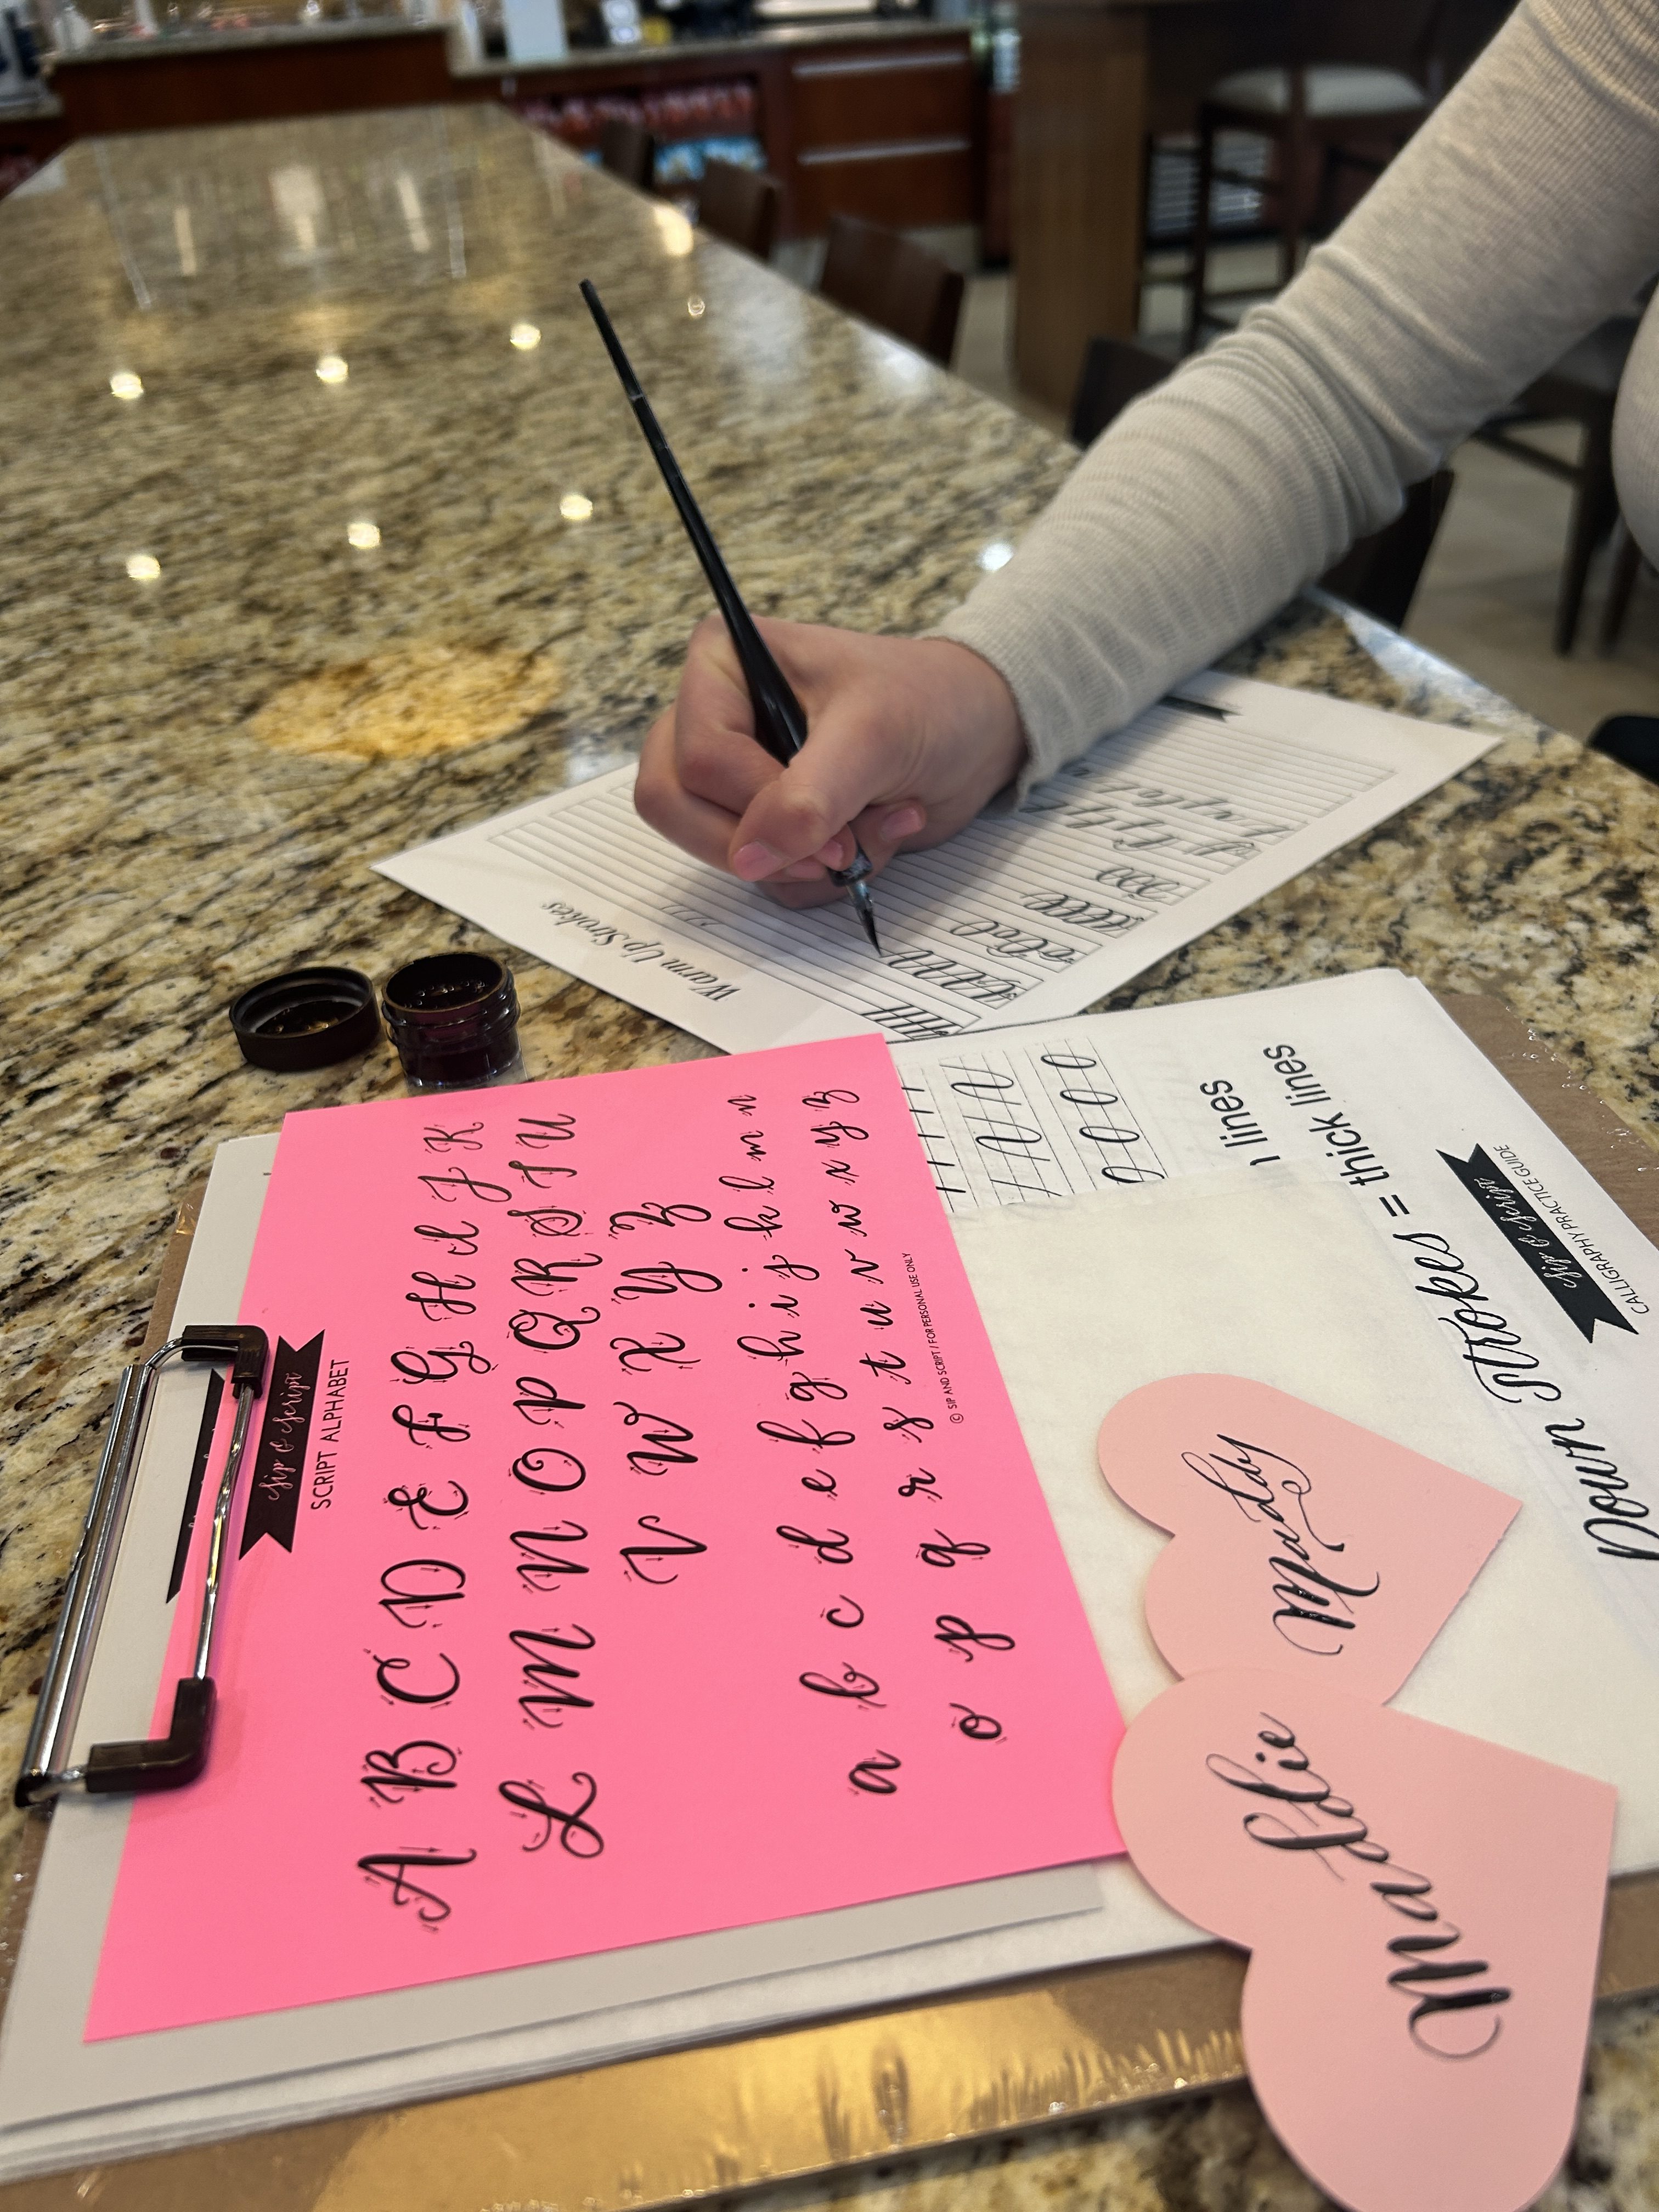 Sip & Script
SCRIPT ALPHABET
A B C D E F G H I J K
L M N O P Q R S T U
V W X Y Z
a b c d e f g h i j k l m n
o p q r s t u v w x y z
© SIP AND SCRIPT / FOR PERSONAL USE ONLY
Warm Up Strokes
lines
Down strokes = thick lines
Sip & Script
CALLIGRAPHY PRACTICE GUIDE
Mandy
Maddie